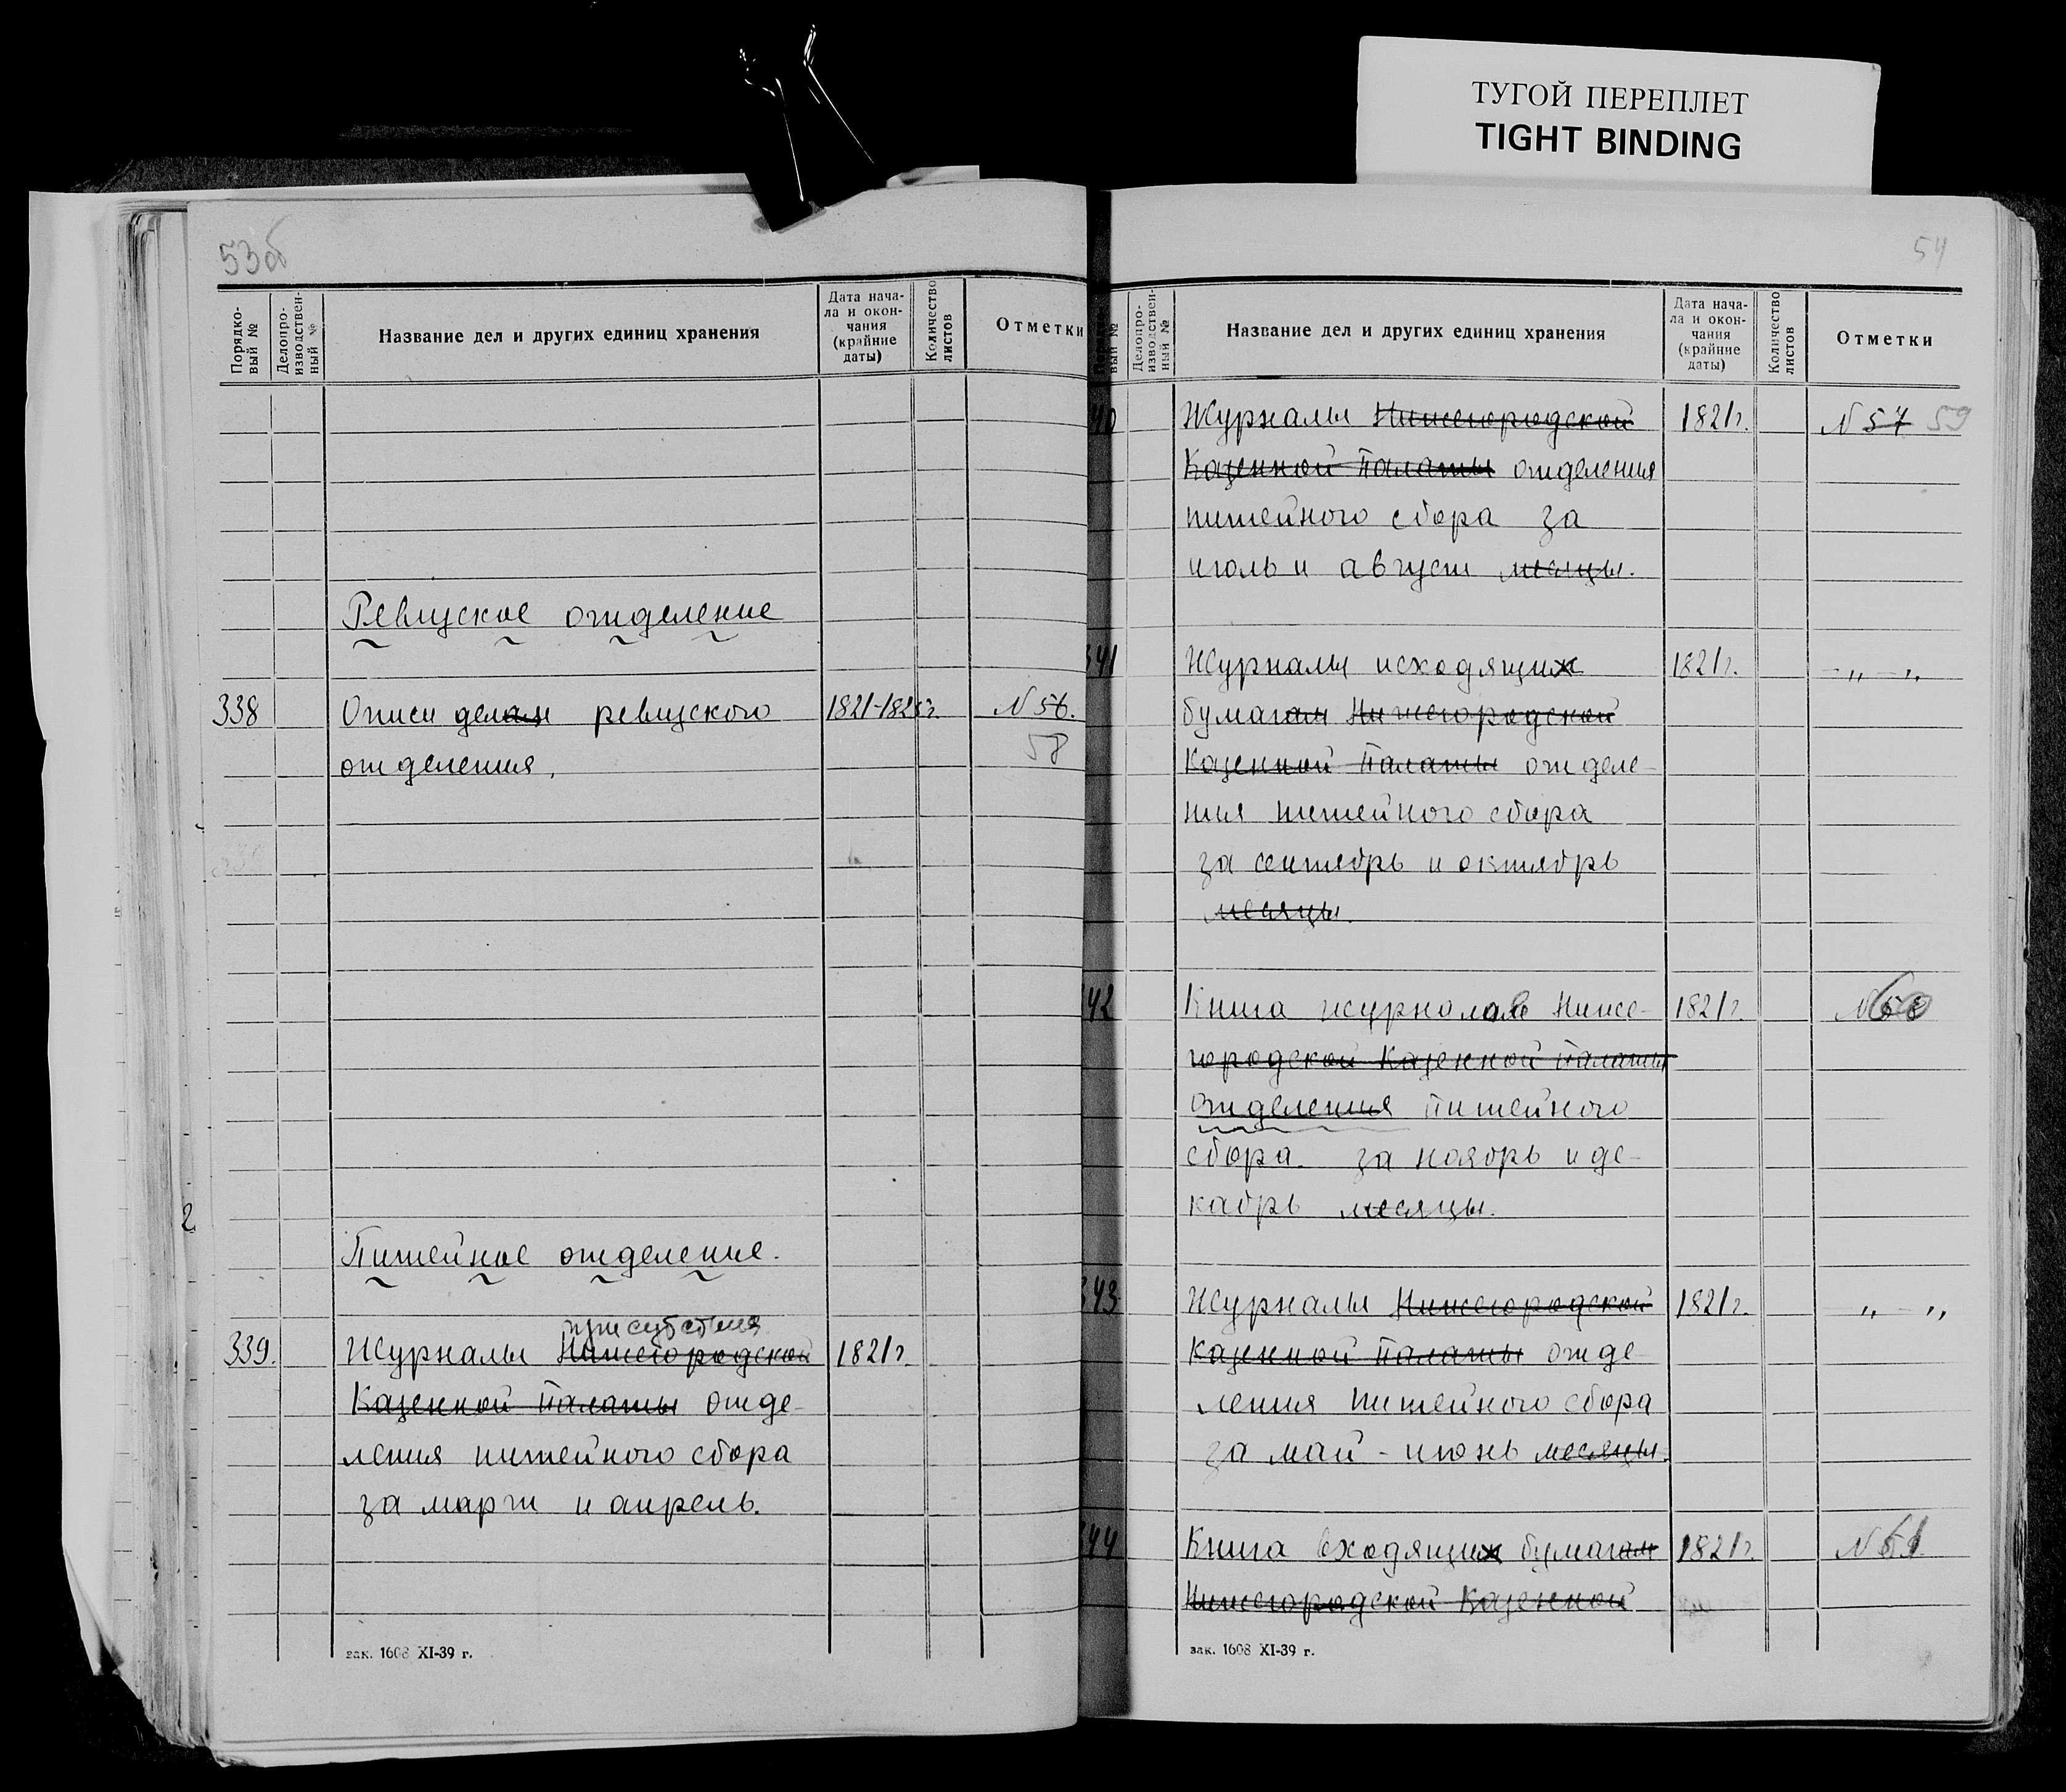 ТУГОЙ ПЕРЕПЛЕТ
TIGHT BINDING
53об
Порядковый №
Делопроизводственный №
Название дел и других единиц хранения
Дата начала и окончания (крайние даты)
Количество листов
Отметки
Ревизское отделение
338 Описи делам ревизского 1821-1825г. N 56.
отделения. 58
Питейное отделение.
присутствия
339. Журналы Нижегородской 1821г.
Казенной Палаты отде-
ления питейного сбора
за март и апрель.
зак. 1608 XI-39 г.
54
вый №
Делопроизводственный №
Название дел и других единиц хранения
Дата начала и окончания (крайние даты)
Количество листов
Отметки
40 Журналы Нижегородской 1821г. N 57 59
Казенной Палаты отделения
питейного сбора за
июль и август месяцы.
341 Журналы исходящих 1821г. -„ -„
бумагам Нижегородской
Казенной Палаты отделе-
ния питейного сбора
за сентябрь и октябрь
месяцы.
342 Книга журналов Ниже- 1821г. N 60
городской Казенной Палаты
отделения питейного
сбора за ноябрь и де-
кабрь месяцы.
343 Журналы Нижегородской 1821г. „ - „
Казенной Палаты отде-
ления питейного сбора
за май - июнь месяцы.
344 Книга входящих бумагам 1821г. N 61
Нижегородской Казенной
зак. 1608 XI-39 г.